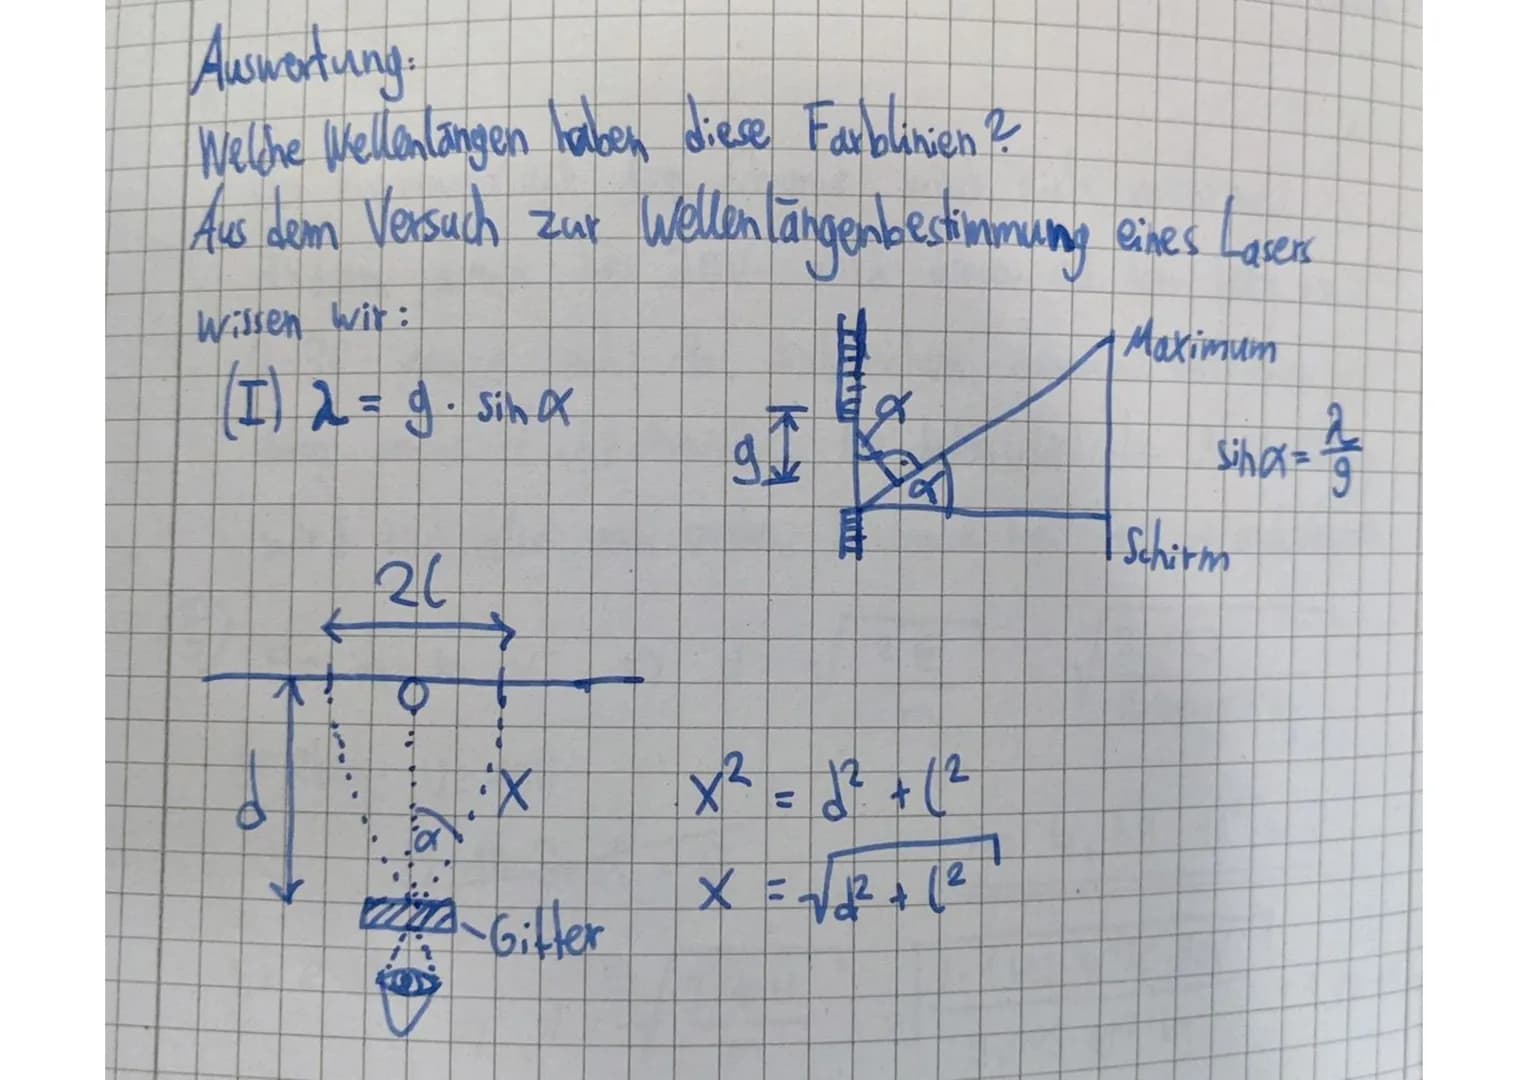 Auswertung:
Welche Wellenlängen haben diese Farblinien?
Aus dem Versuch zur Wellenlängenbestimmung eines Lasers
wissen wir:
(I) λ = g · sin α
Maximum
α
g
α
sin α = λ/g
Schirm
2l
d
x
α
Gitter
x² = d² + l²
x = √d² + l²